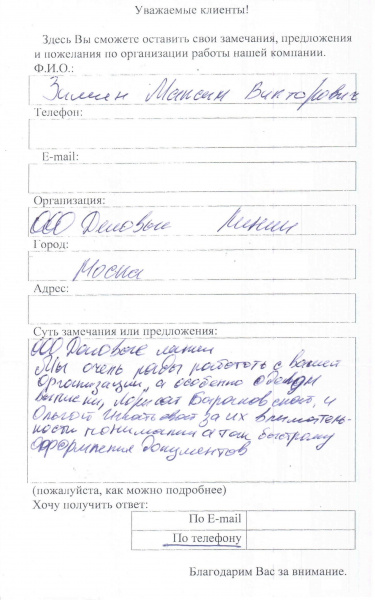 Уважаемые клиенты!
Здесь Вы сможете оставить свои замечания, предложения
и пожелания по организации работы нашей компании.
Ф.И.О.:
Зимин Максим Викторович
Телефон:
E-mail:
Организация:
ООО Деловые Линии
Город:
Москва
Адрес:
Суть замечания или предложения:
ООО Деловые линии
Мы очень рады работать с Вашей
организации, а особенно
Ларисой Барановской, и
Ольгой за их вниматель-
ности понимания а так быстрому
оформления документов
(пожалуйста, как можно подробнее)
Хочу получить ответ:
По E-mail
По телефону
Благодарим Вас за внимание.